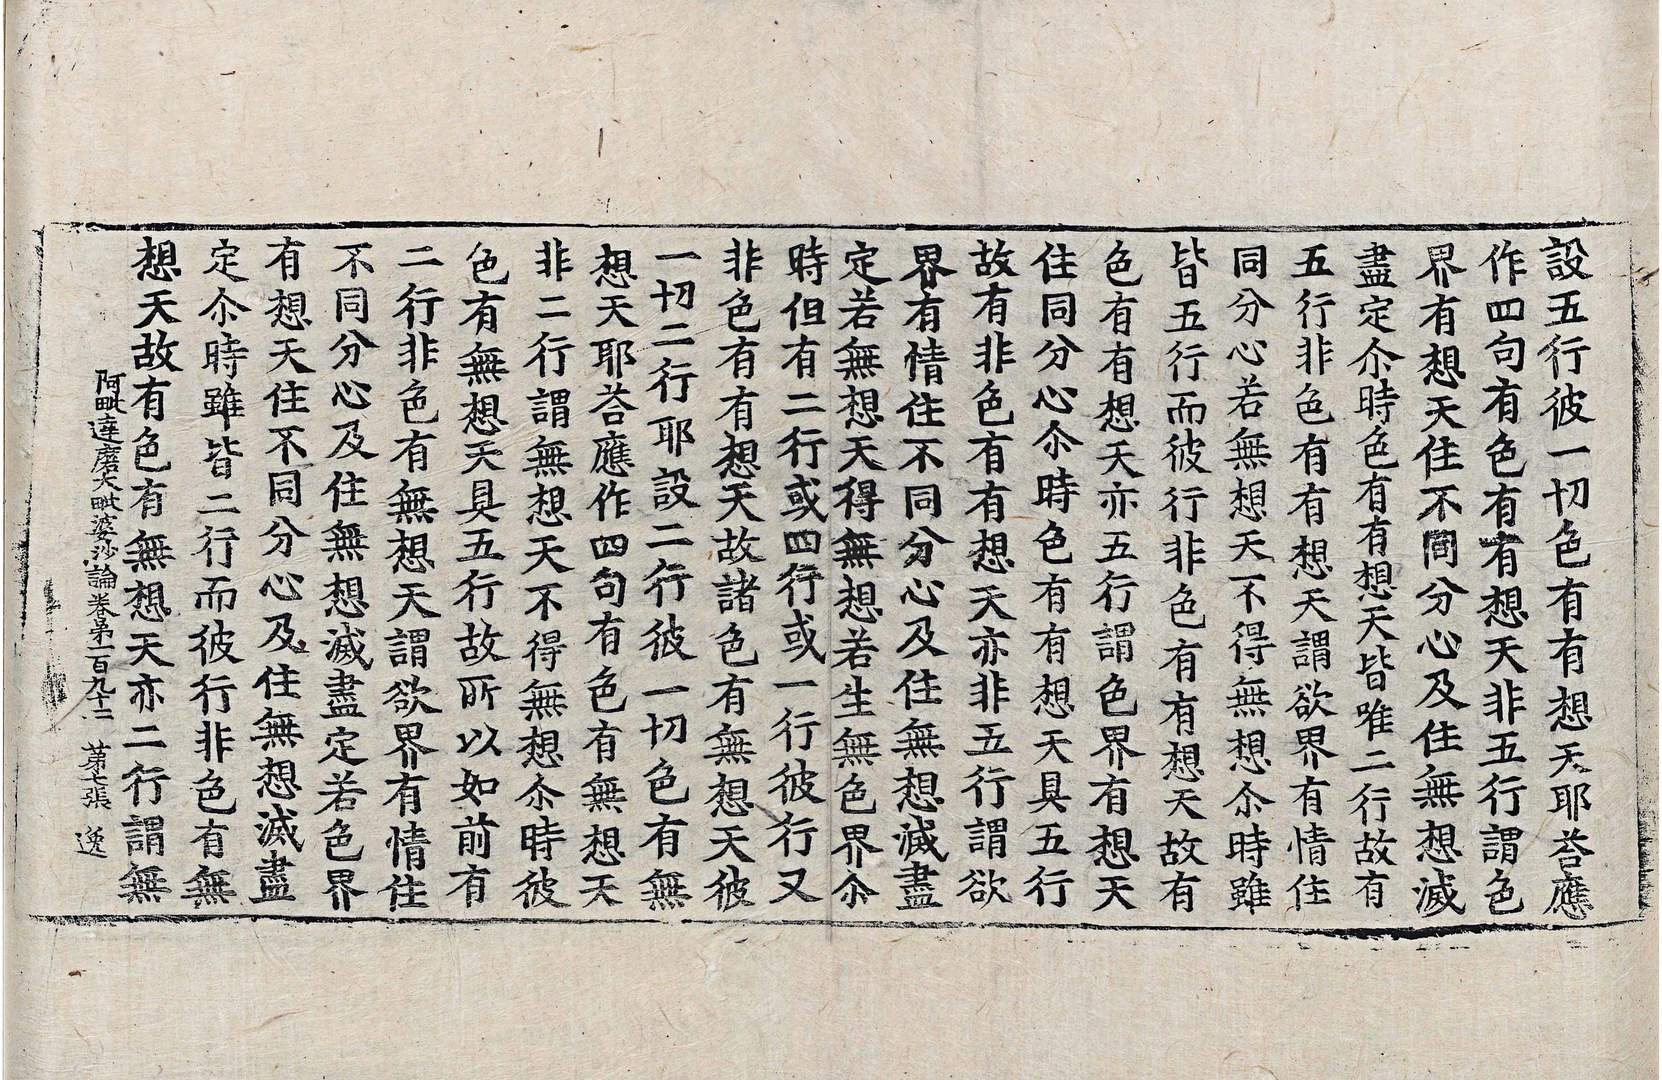 設五行彼一切色有有想天耶荅應
作四句有色有有想天非五行謂色
界有想天住不同分心及住無想滅
盡定尒時色有有想天皆唯二行故有
五行非色有有想天謂欲界有情住
同分心若無想天不得無想尒時雖
皆五行而彼行非色有有想天故有
色有有想天亦五行謂色界有想天
住同分心尒時色有有想天具五行
故有非色有有想天亦非五行謂欲
界有情住不同分心及住無想滅盡
定若無想天得無想若生無色界尒
時但有二行或四行或一行彼行又
非色有有想天故諸色有無想天彼
一切二行耶設二行彼一切色有無
想天耶荅應作四句有色有無想天
非二行謂無想天不得無想尒時彼
色有無想天具五行故所以如前有
二行非色有無想天謂欲界有情住
不同分心及住無想滅盡定若色界
有想天住不同分心及住無想滅盡
定尒時雖皆二行而彼行非色有無
想天故有色有無想天亦二行謂無
阿毗達磨大毗婆沙論卷第一百九十二 第七張 逸